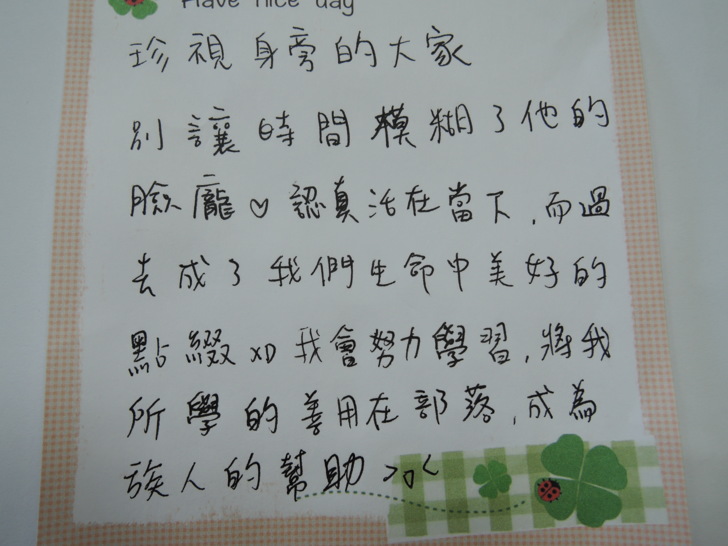 Have nice day
珍視身旁的大家
別讓時間模糊了他的
臉龐♡認真活在當下,而過
去成了我們生命中美好的
點綴XD我會努力學習,將我
所學的善用在部落,成為
族人的幫助>o<